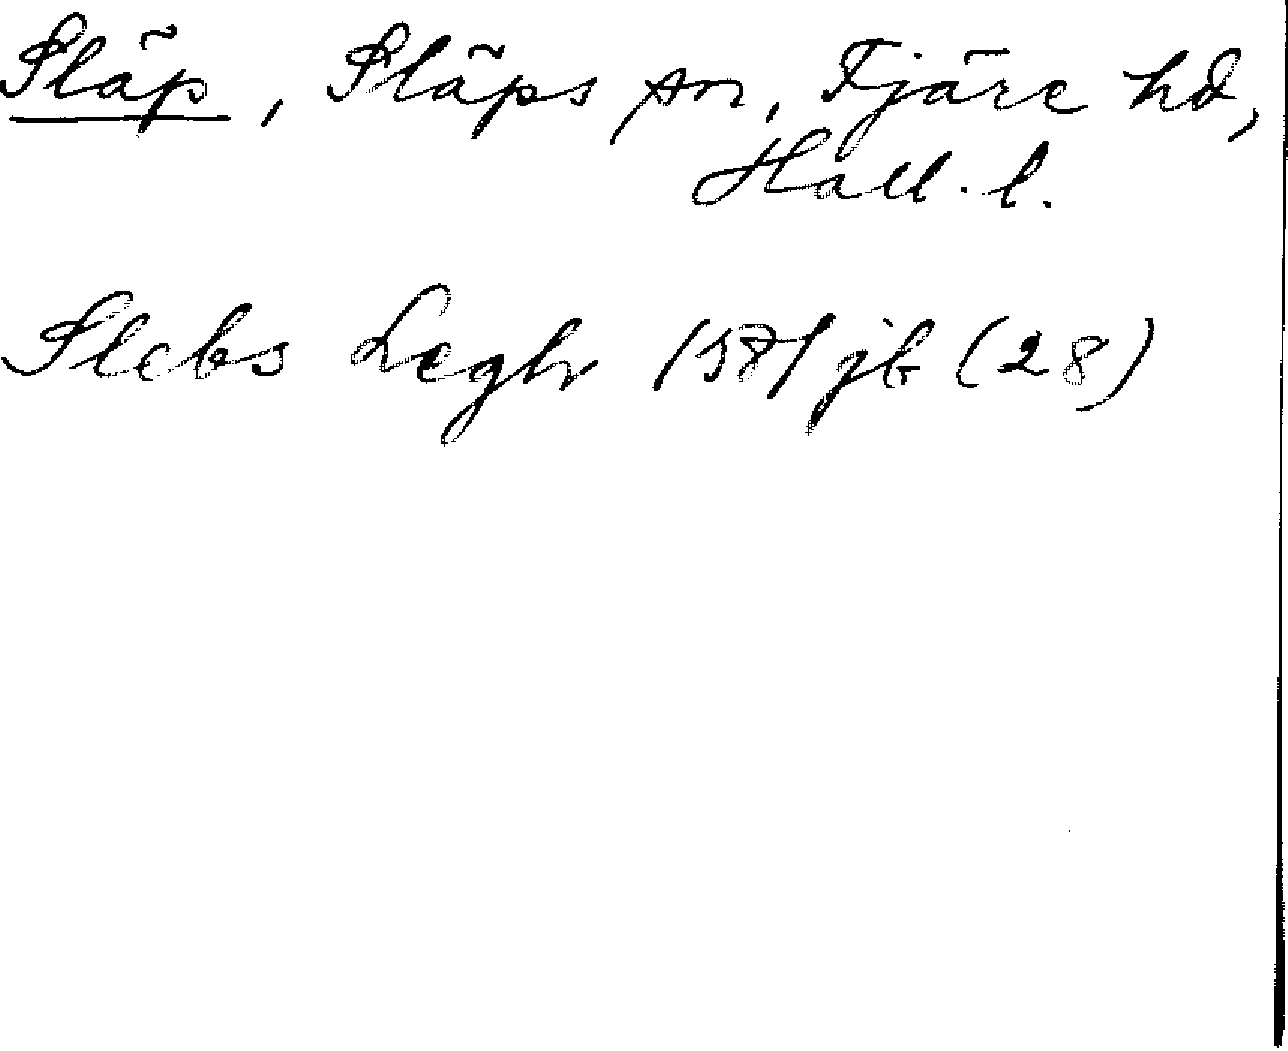 Släp, Släps sn, Fjäre hd,
Hall. l.
Slebs Lægh 1581 jb (28)